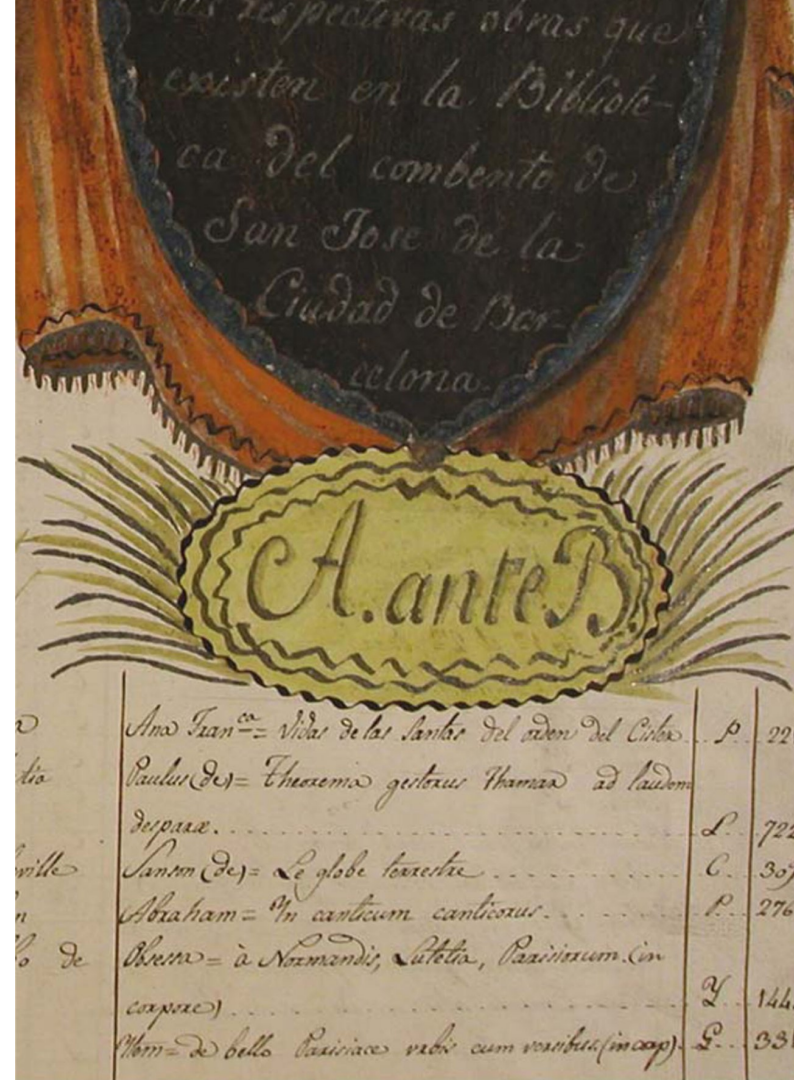 sus respectivas obras que
existen en la Bibliote-
ca del combento de
San Jose de la
Ciudad de Bar-
celona.
A. ante B.
Ana Fran^ca = Vidas de las Santas del orden del Cister P. 22
tia Paulus (de) = Theorema gestorus Thamar ad laudem
deiparæ. L. 722
ville Sanson (de) = Le globe terrestre C. 307
n Abraham = In canticum canticorus. P. 276
o de Obsessa = à Normandis, Lutetia, Parisiorum. (in
corpore) Y 144
Item = de bello Parisiace urbis cum versibus. (in corp) G. 331